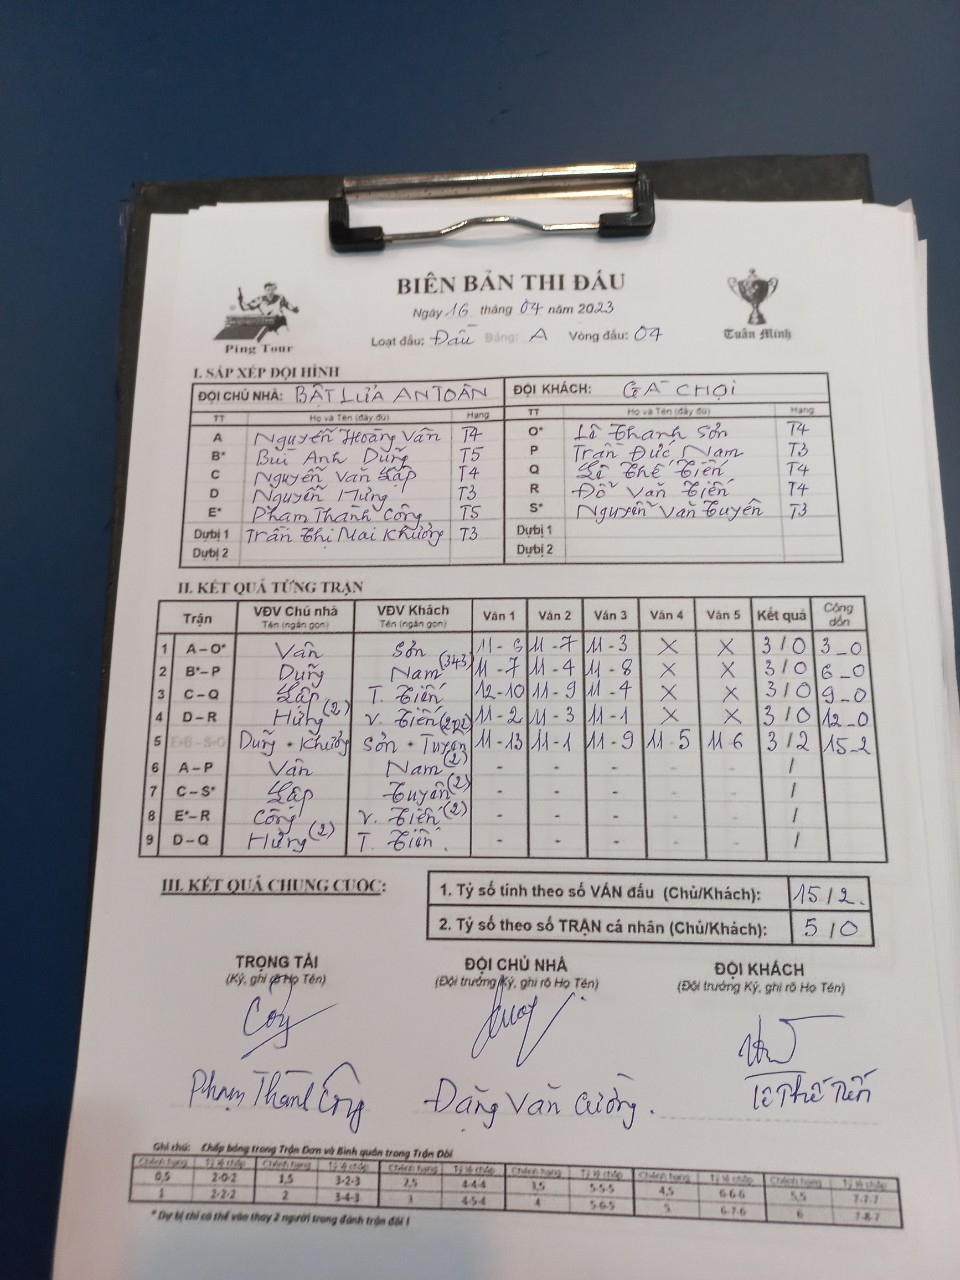 BIÊN BẢN THI ĐẤU
Ngày 16 tháng 04 năm 2023
Loạt đấu: Đầu Bảng: A Vòng đấu: 04
Ping Tour
Tuấn Minh
I. SẮP XẾP ĐỘI HÌNH
ĐỘI CHỦ NHÀ: BẬT LỬA AN TOÀN ĐỘI KHÁCH: GÀ CHỌI
TT Họ và Tên (đầy đủ) Hạng TT Họ và Tên (đầy đủ) Hạng
A Nguyễn Hoàng Vân T4 O* Lê Thanh Sơn T4
B* Bùi Anh Dũng T5 P Trần Đức Nam T3
C Nguyễn Văn Lập T4 Q Lê Thế Tiến T4
D Nguyễn Hưng T3 R Đỗ Văn Tiến T4
E* Phạm Thành Công T5 S* Nguyễn Văn Tuyên T3
Dự bị 1 Trần Thị Mai Khương T3 Dự bị 1
Dự bị 2 Dự bị 2
II. KẾT QUẢ TỪNG TRẬN
Trận VĐV Chủ nhà VĐV Khách Ván 1 Ván 2 Ván 3 Ván 4 Ván 5 Kết quả Cộng dồn
Tên (ngắn gọn) Tên (ngắn gọn)
1 A – O* Vân Sơn 11 - 6 11 - 7 11 - 3 X X 3 / 0 3 - 0
2 B* – P Dũng Nam (343) 11 - 7 11 - 4 11 - 8 X X 3 / 0 6 - 0
3 C – Q Lập T. Tiến 12 - 10 11 - 9 11 - 4 X X 3 / 0 9 - 0
4 D – R Hưng (2) V. Tiến 11 - 2 11 - 3 11 - 1 X X 3 / 0 12 - 0
5 Dũng + Khương Sơn + Tuyên 11 - 13 11 - 1 11 - 9 11 - 5 11 - 6 3 / 2 15 - 2
6 A – P Vân Nam (2) - - - - - /
7 C – S* Lập Tuyên (2) - - - - - /
8 E* – R Công V. Tiến (2) - - - - - /
9 D – Q Hưng (2) T. Tiến. - - - - - /
III. KẾT QUẢ CHUNG CUỘC:
1. Tỷ số tính theo số VÁN đấu (Chủ/Khách): 15 / 2.
2. Tỷ số theo số TRẬN cá nhân (Chủ/Khách): 5 / 0
TRỌNG TÀI ĐỘI CHỦ NHÀ ĐỘI KHÁCH
(Ký, ghi rõ Họ Tên) (Đội trưởng Ký, ghi rõ Họ Tên) (Đội trưởng Ký, ghi rõ Họ Tên)
Phạm Thành Công Đặng Văn Cường. Lê Thế Tiến
Ghi chú: Chấp bóng trong Trận Đơn và Bình quân trong Trận Đôi
Chênh hạng Tỷ lệ chấp Chênh hạng Tỷ lệ chấp Chênh hạng Tỷ lệ chấp Chênh hạng Tỷ lệ chấp Chênh hạng Tỷ lệ chấp Chênh hạng Tỷ lệ chấp
0,5 2-0-2 1,5 3-2-3 2,5 4-4-4 3,5 5-5-5 4,5 6-6-6 5,5 7-7-7
1 2-2-2 2 3-4-3 3 4-5-4 4 5-6-5 5 6-7-6 6 7-8-7
* Dự bị chỉ có thể vào thay 2 người trong đánh trận đôi !